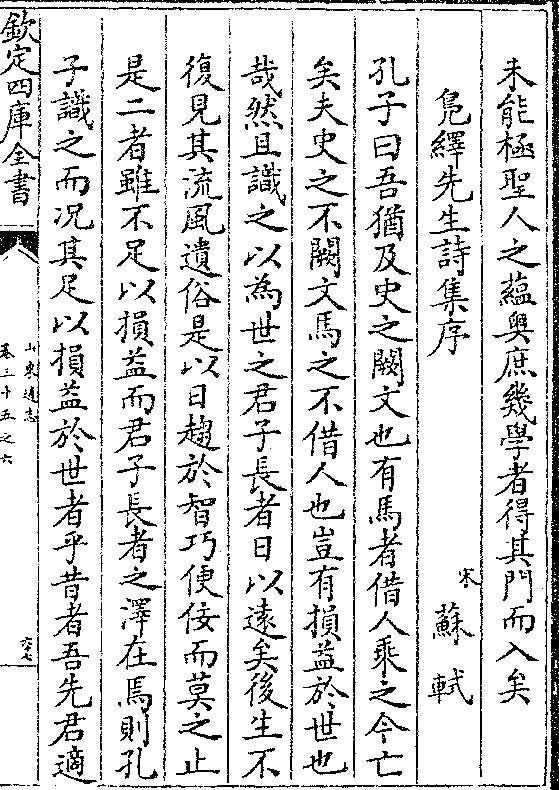 未能極聖人之蘊奥庶幾學者得其門而入矣
鳬繹先生詩集序
宋 蘇軾
孔子曰吾猶及史之闕文也有馬者借人乘之今亡
矣夫史之不闕文馬之不借人也豈有損益於世也
哉然且識之以為世之君子長者日以遠矣後生不
復見其流風遺俗是以日趨於智巧便佞而莫之止
是二者雖不足以損益而君子長者之澤在焉則孔
子識之而况其足以損益於世者乎昔者吾先君適
欽定四庫全書
山東通志
卷三十五之六
六七